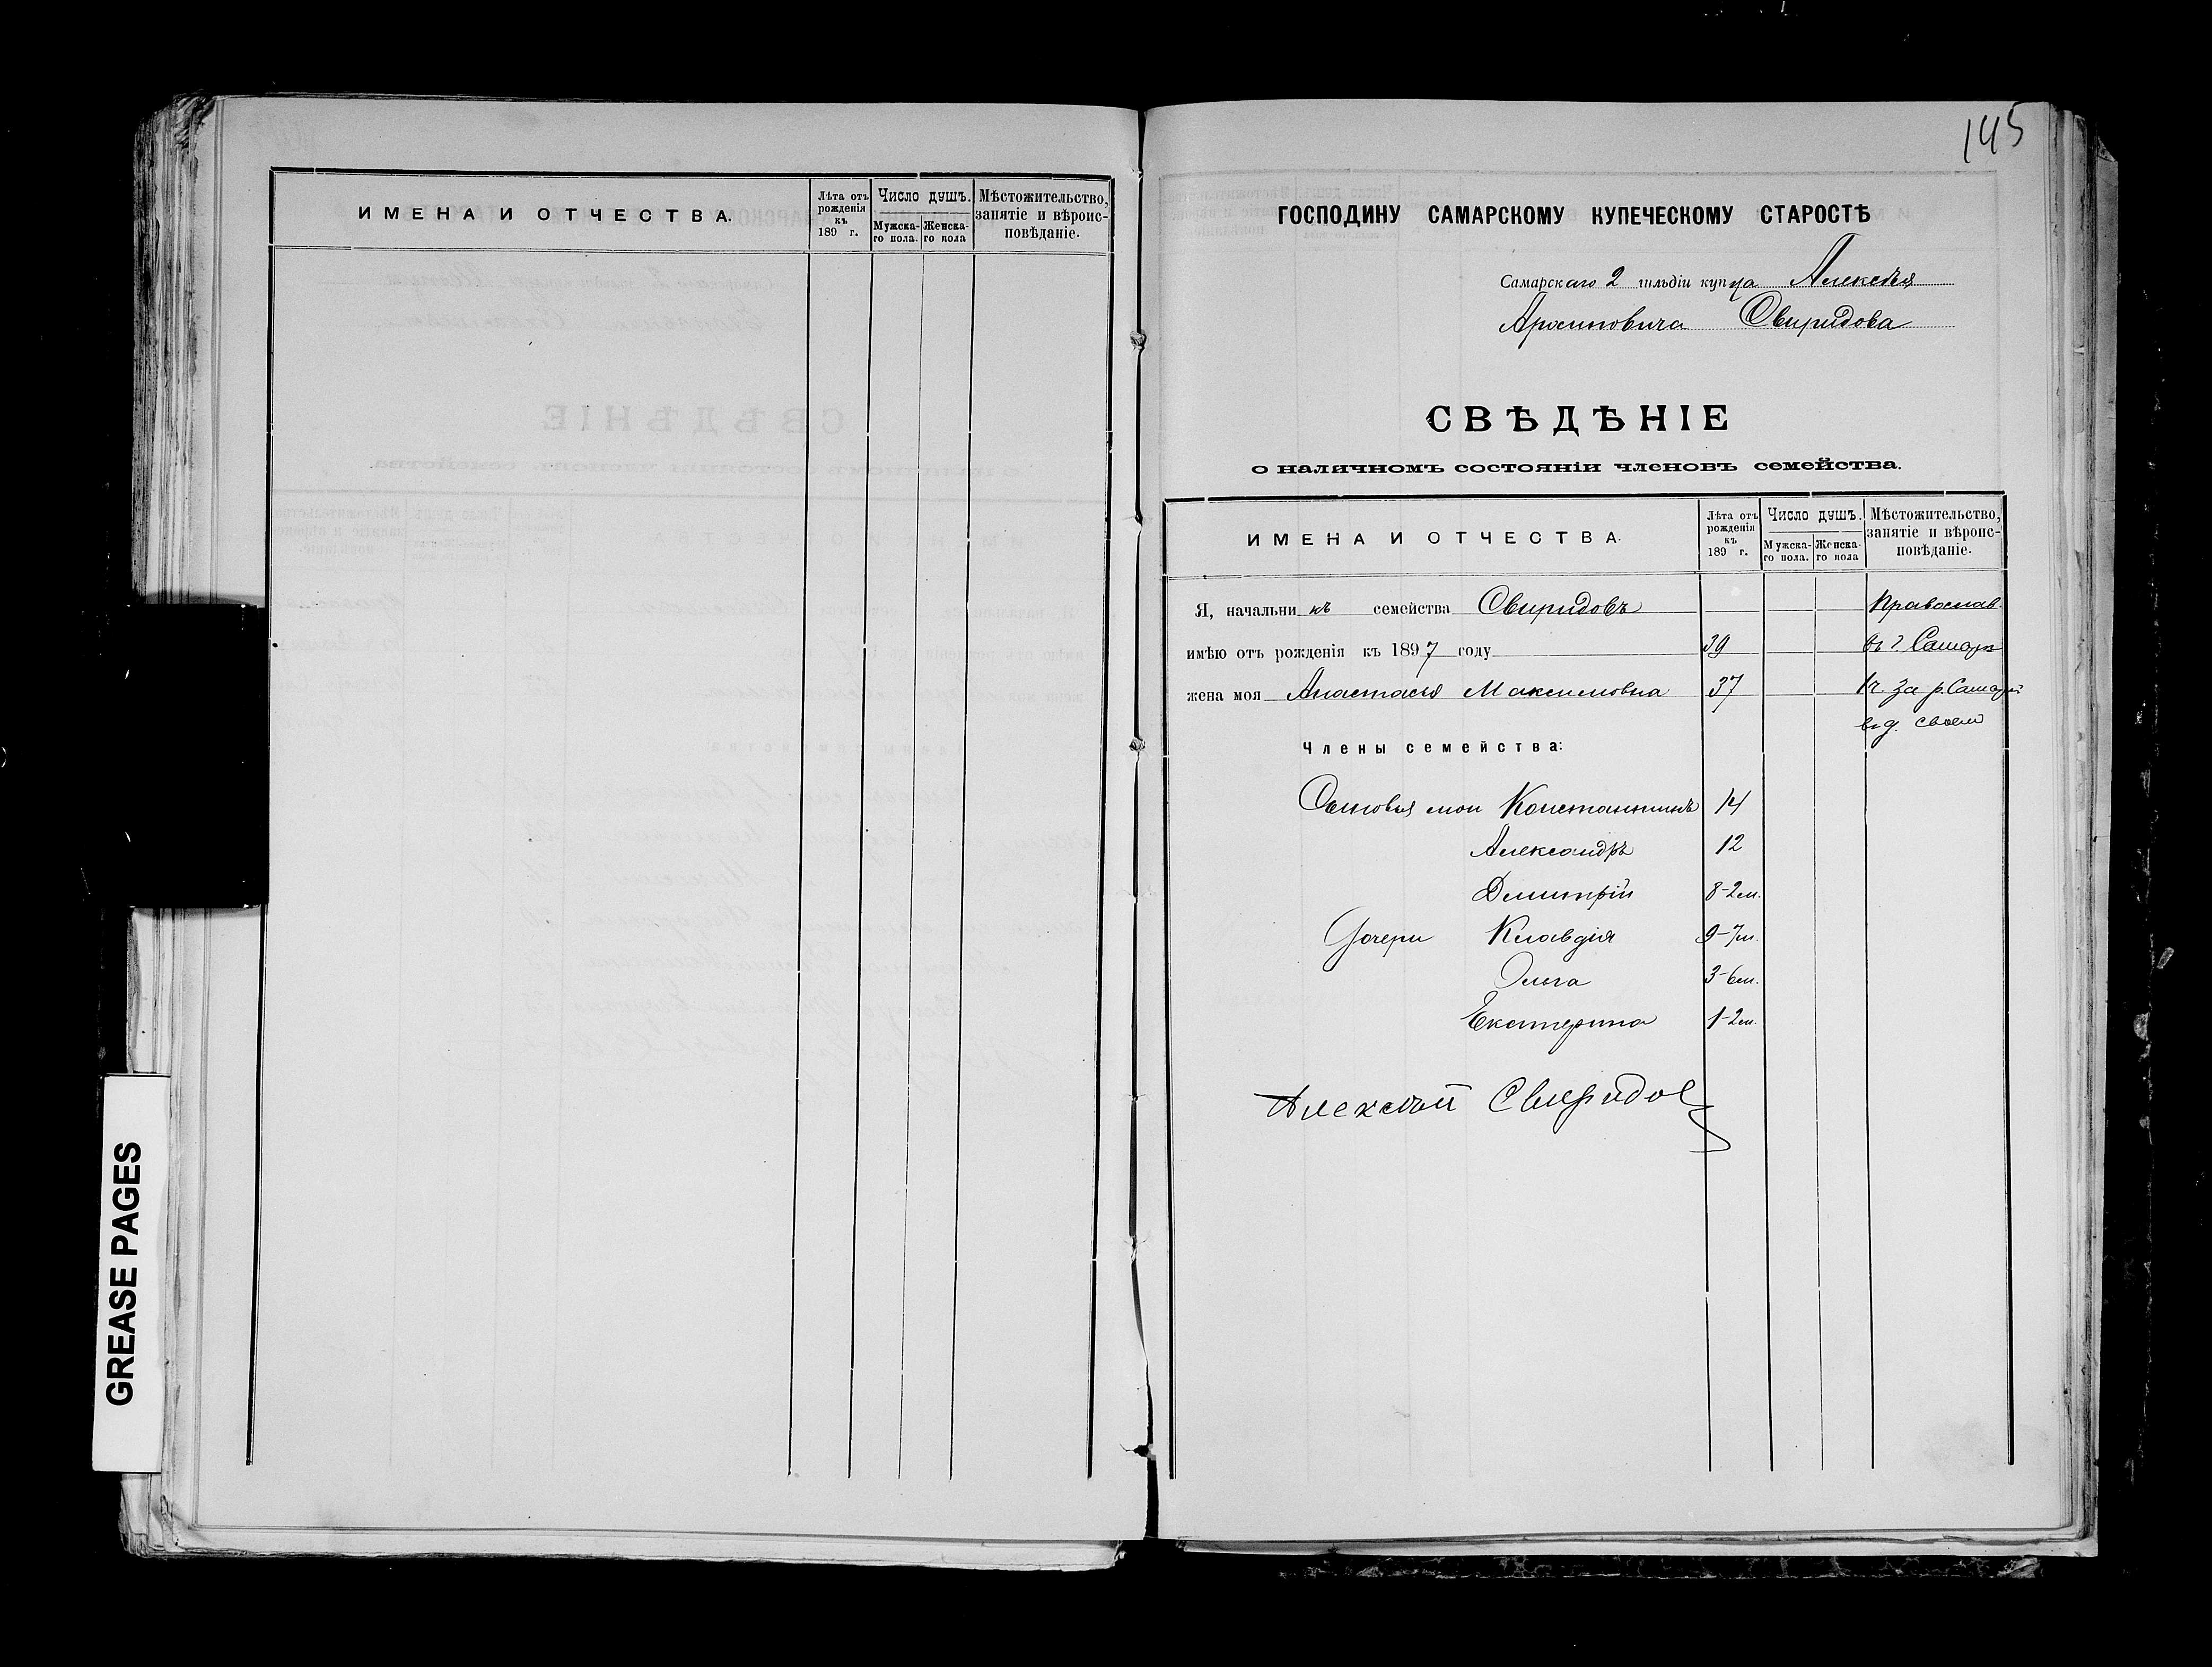 ИМЕНА И ОТЧЕСТВА.
Лѣта отъ рожденія къ 189 г.
Число душъ.
Мужска-го пола.
Женска-го пола
Мѣстожительство, занятіе и вѣроис-повѣданіе.
145
ГОСПОДИНУ САМАРСКОМУ КУПЕЧЕСКОМУ СТАРОСТѢ
Самарскаго 2 гильдіи купца Алексѣя
Свиридова
СВѢДѢНІЕ
о наличномъ состояніи членовъ семейства.
ИМЕНА И ОТЧЕСТВА.
Лѣта отъ рожденія къ 189 г.
Число душъ.
Мужска-го пола.
Женска-го пола
Мѣстожительство, занятіе и вѣроис-повѣданіе.
Я, начальникъ семейства Свиридовъ Православ.
имѣю отъ рожденія къ 1897 году 39 въ г Самарѣ
жена моя Анастасья Максимовна 37 1ч. За р. Самарой
в д. своем
Члены семейства:
Сыновья мои Константинъ 14
Александръ 12
Дмитрій 8-2 м.
Дочери Клавдія 9-7 м.
Ольга 3-6 м.
Екатерина 1-2 м.
Алексѣй Свиридов
GREASE PAGES